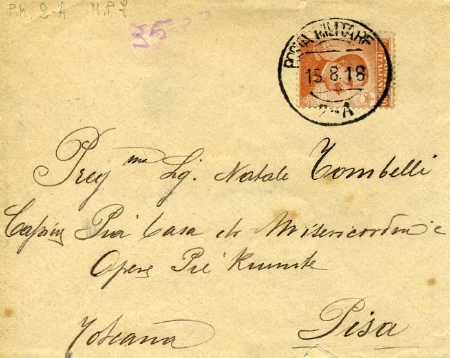 P.M. 2-A M.P.
POSTA MILITARE
15.8.18
2-A
Preg mo Sg. Natale Tombelli
Pia Casa di Misericordia e
Opere Pie Riunite
Toscana Pisa